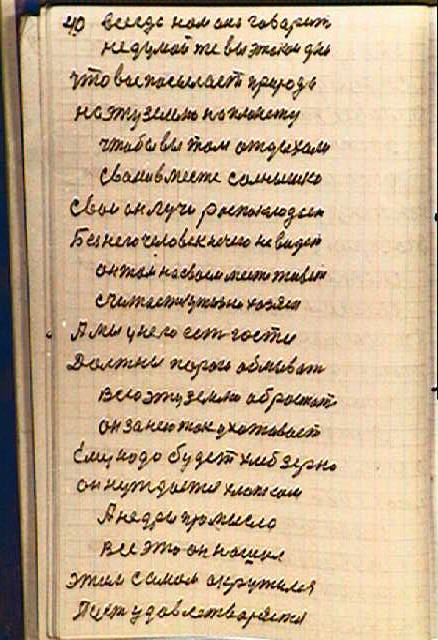 40 всегда нам он говорит
не думайте же вы этак
что вы посылает природа
на эту землю на планету
чтобы вы там отдыхали
с вами вместе солнышко
свои он лучи
Без него человек нечего не видет
он там на своем месте живет
считается хозяин
А мы у него есть гости
Должны порог обмывать
всю эту землю
он за ней так ухаживает
Ему надо будет хлеб зерно
он нуждается
А недра
все это он нашел
этим самым окружился
удовлетворяется